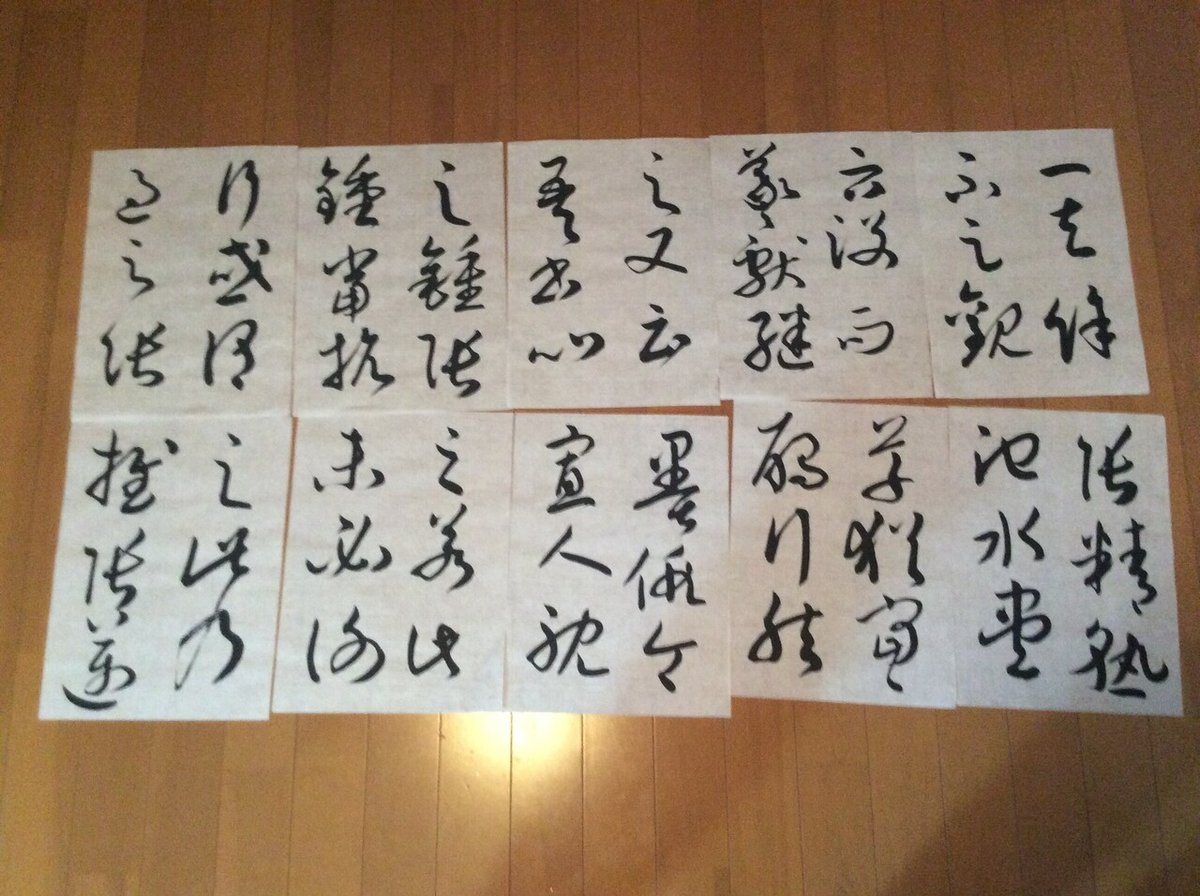 一其餘
不足觀
云没而
羲獻繼
之又云
吾書比
之鍾張
鍾當抗
行或謂
過之張
張精熟
池水盡
草猶當
鴈行然
墨假令
寡人耽
之若此
未必謝
之此乃
推張邁